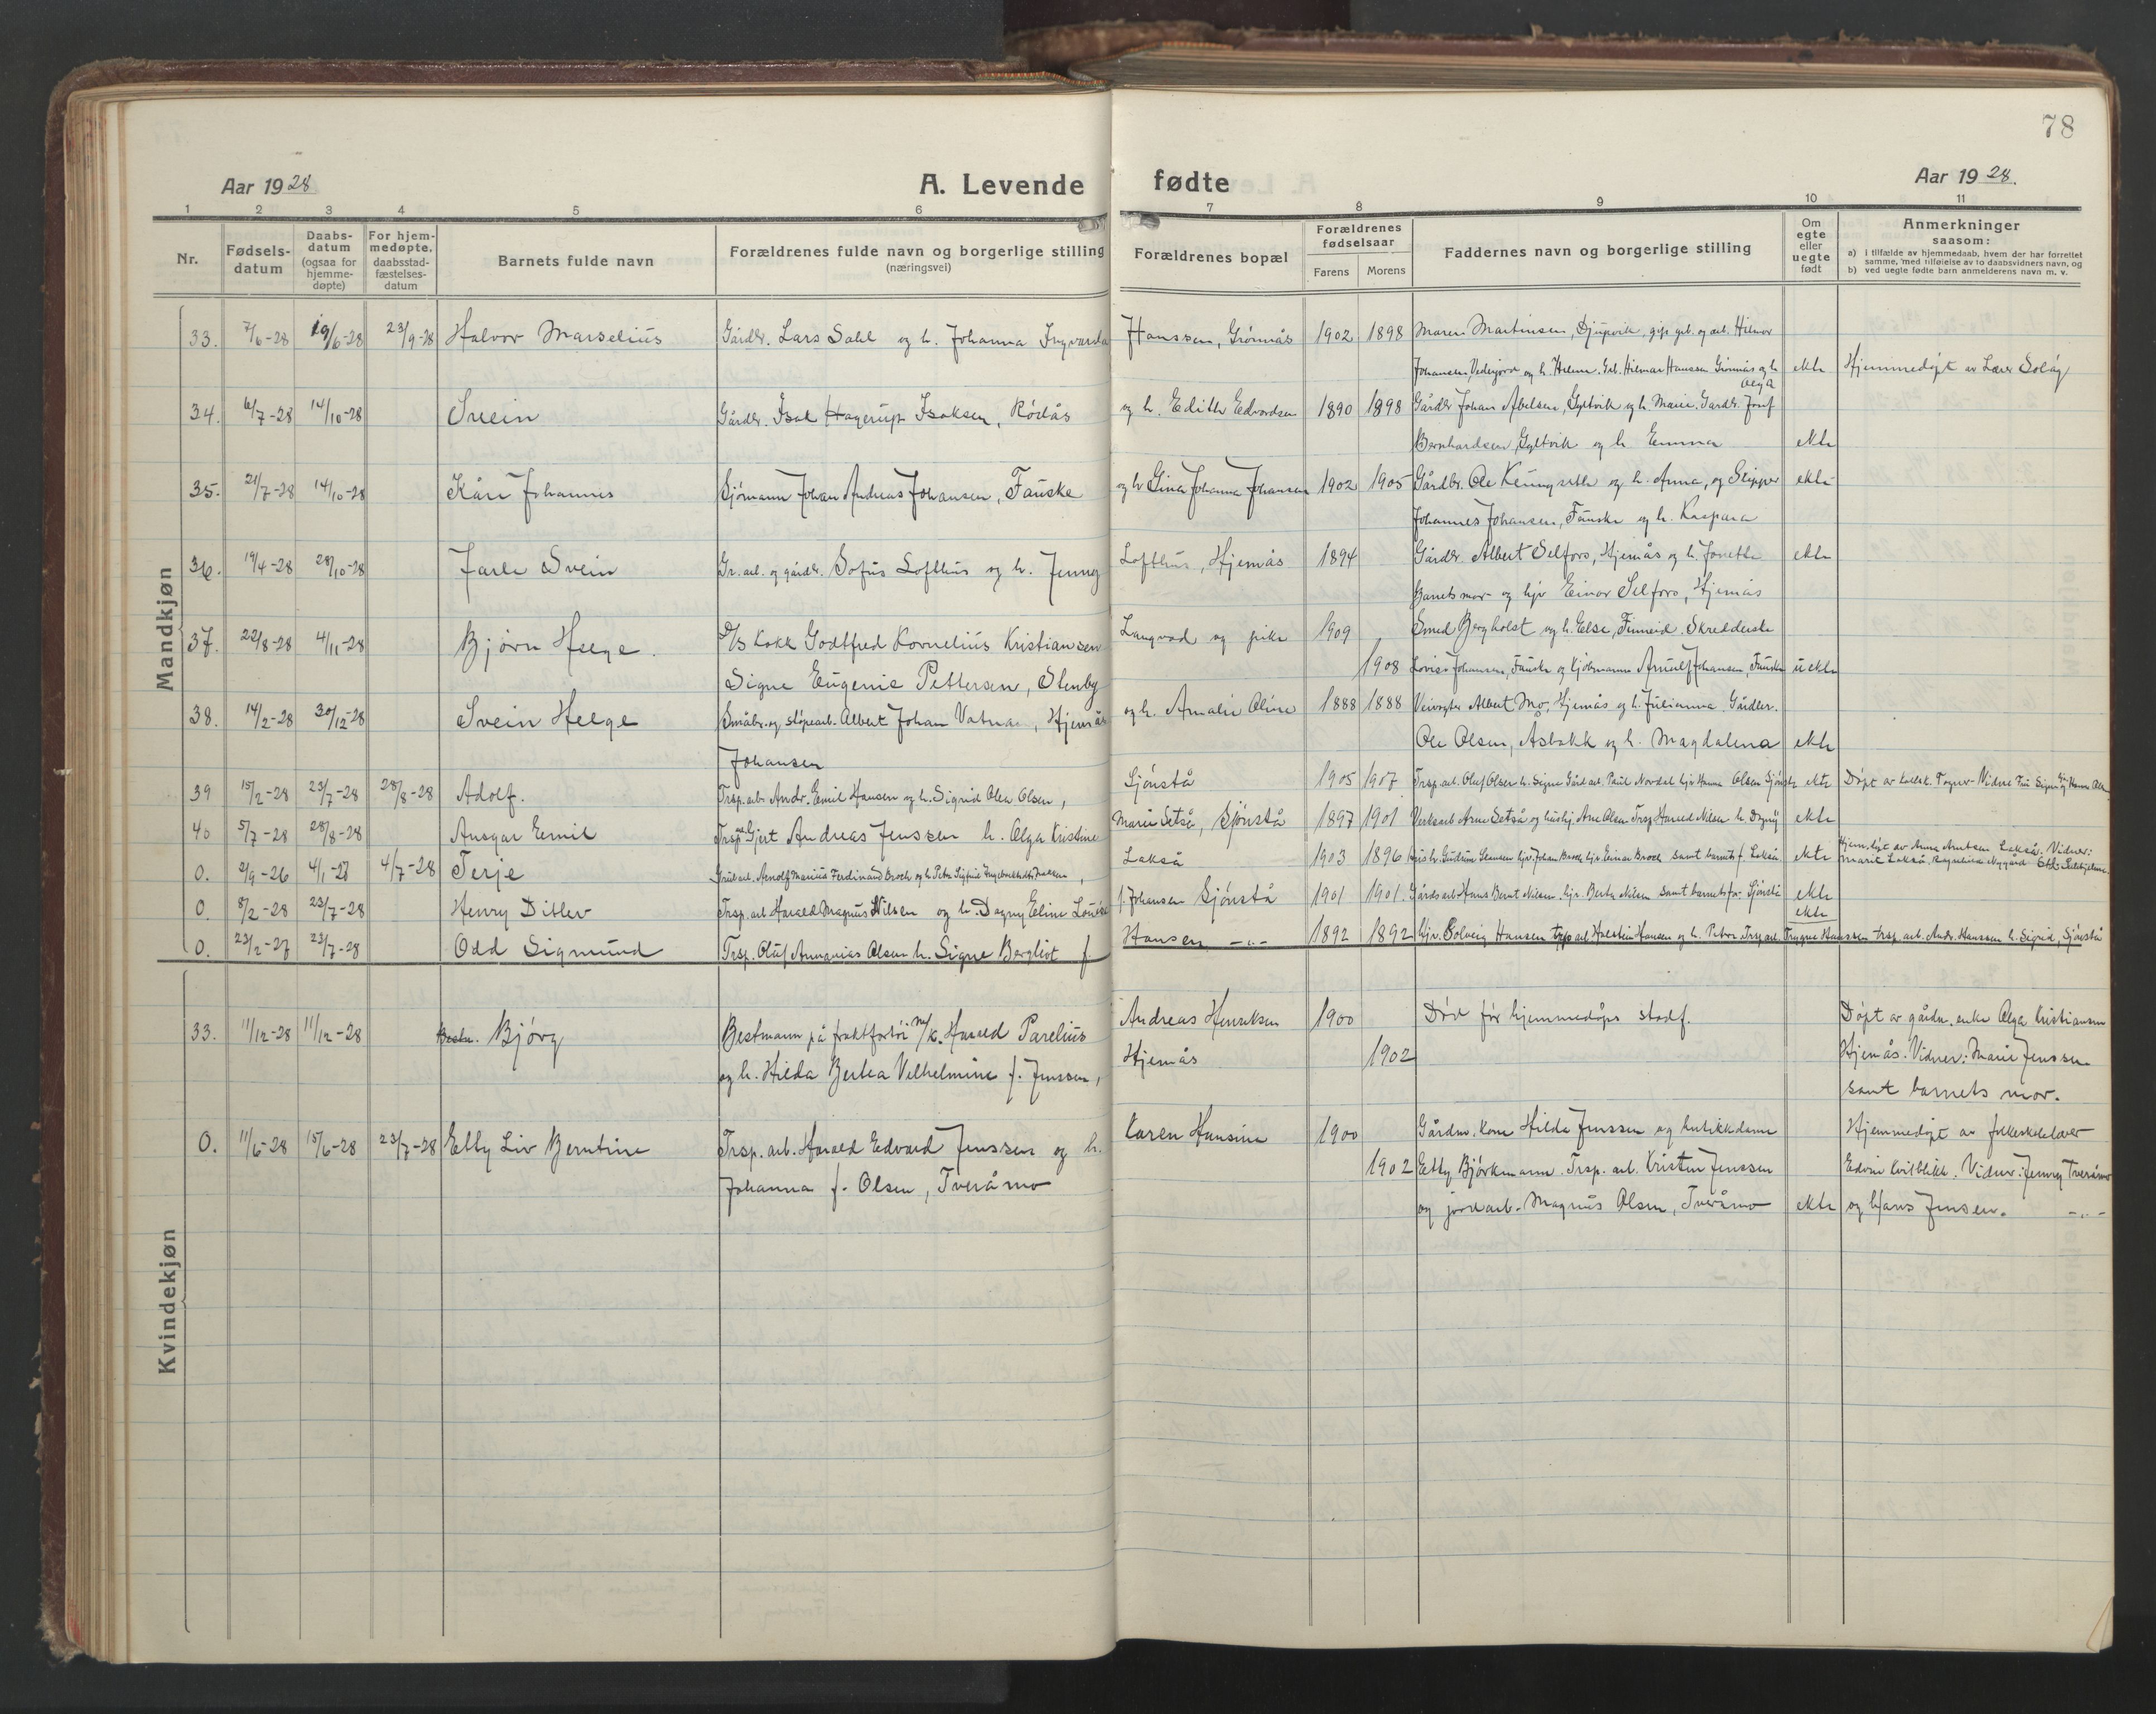 78
Aar 1928 A. Levende fødte Aar 1928.
1 2 3 4 5 6 7 8 9 10 11
Nr. Fødsels-datum Daabs-datum (ogsaa for hjemme-døpte) For hjem-medøpte. daabsstad-fæstelses-datum Barnets fulde navn Forældrenes fulde navn og borgerlige stilling (næringsvei) Forældrenes bopæl Forældrenes fødselsaar Farens Morens Faddernes navn og borgerlige stilling Om egte eller uegte født Anmerkninger saasom:
a) i tilfælde av hjemmedaab, hvem der har forrettet samme, med tilføielse av to daabsvidners navn, og
b) ved uegte fødte barn anmelderens navn m. v.
Mandkjøn
33. 7/6-28 19/6-28 23/9-28 Halvor Marselius Gårdbr. Lars Dahl og h. Johanna Ingvarda Hanssen, Grønnås 1902 1898 Maren Martinsen, Djupvik, og arb. Hilmar
Johansen, og h. Hilmar Hanssen Grønnås og h. Olga ekte Hjemmedøpt av Lars Solåg
34. 6/7-28 14/10-28 Svein Gårdbr. Isak Hagerup Isaksen, Rødås og h. Edith Edvardsen 1890 1898 Gårdbr Johan Abelsen, Gyltvik og h. Marie. Gårdbr. Josef
Bernhardsen, Gyltvik og h Emma ekte
35. 21/7-28 14/10-28 Kåre Johannes Sjømann Johan Andreas Johansen, Fauske og h Gina Johanna Johansen 1902 1905 Gårdbr. Ole og h. Anna, og Skipper ekte
Johannes Johansen, Fauske og h. Kaspara
36. 19/4-28 28/10-28 Jarle Svein Gr. arb. og gårdbr. Sofus Lofthus og h. Jenny Lofthus, Hjemås 1894 Gårdbr. Albert Selfors, Hjemås og h. Jonette ekte
Barnets mor og hjv Einar Selfors, Hjemås
37. 22/8-28 4/11-28 Bjørn Helge. D/S Kokk Godtfred Kornelius Kristiansen Langvad og pike 1909 Smed Bergholst og h. Else, Finneid. Skredderske
Signe Eugenie Pettersen, Stenby 1908 Lovise Johansen, Fauske og Kjøbmann Arnulf Johansen, Fauske uekte
38. 14/2-28 30/12-28 Svein Helge Småbr. og støpearb. Albert Johan Vatnan, Hjemås og h. Amalie Oline 1888 1888 Veivogter Albert Mo, Hjemås og h. Julianna. Gårdbr.
Johansen Ole Olsen, Asbakk og h. Magdalena ekte
39 15/2-28 23/7-28 28/8-28 Adolf. Trsp. arb. Andr. Emil Hansen og h. Sigrid Olea Olsen, Sjønstå 1905 1907 Trsp. arb. Oluf Olsen h. Signe Gård arb. Paul Nordal hjv Hanna Olsen Sjønstå ekte Døpt av Vidne Fru Signe og Hanna Olsen
40 5/7-28 28/8-28 Ansgar Emil Trsp. arb Gjert Andreas Jenssen h. Olga Kristine Marie Setså, Sjønstå 1897 1901 Verksarb Arne Setså og hushj. Arne Olsen Trsp Harald Nilsen h. Dagny ekte
0. 2/9-26 4/1-28 4/7-28 Terje Grubearb. Arnolf Marius Ferdinand Broch og h. Petra Sigfrid Ingeborg, Lakså 1903 1896 Gudrun hjv. Johan Broch hjv Einar Broch samt barnets f. Lakså ekte Hjem. døpt av Anna Arntsen Lakså. Vidner: Marie Lakså,
0. 8/2-28 23/7-28 Henry Ditlev Trsp. arb Harald Magnus Nilsen og h. Dagny Eline Louise f. Johansen Sjønstå 1901 1901. Gårdsarb Hans Bernt Nilsen. hjv. Berta Nilsen samt barnets far Sjønstå ekte
0. 23/2-27 23/7-28 Odd Sigmund Trsp. Oluf Annanias Olsen h. Signe Bergliot f. Hansen -"- 1892 1892 hjv. Solveig Hansen trsp arb Halstein Hansen og h. Petra Trsp arb. Trygve Hanssen trsp. arb. Andr. Hanssen h. Sigrid, Sjønstå ekte
Kvindekjøn
33. 11/12-28 11/12-28 Bjørg Bestmann på fraktfartøi M/K. Harald Parelius Andreas Henriksen 1900 Død før hjemmedåps stadf. Døpt av gårdm. enke Olga Kristiansen
og h. Hilda Berta Vilhelmine f. Jenssen, Hjemås 1902 Hjemås. Vidner: Marie Jenssen
samt barnets mor.
0. 11/6-28 15/6-28 23/7-28 Etly Liv Berntine Trsp. arb. Harald Edvard Jenssen og h. Karen Hansine 1900 Gårdm. kone Hilda Jenssen og butikkdame Hjemmedøpt av folkeskolelærer
Johanna f. Olsen, Tveråmo 1902 Etly Bjørkmann. Trsp. arb. Kristen Jenssen Edvin Kvitblikk. Vidner: Jenny Tveråmo
og jordarb. Magnus Olsen, Tveråmo ekte og Hans Jensen. -"-